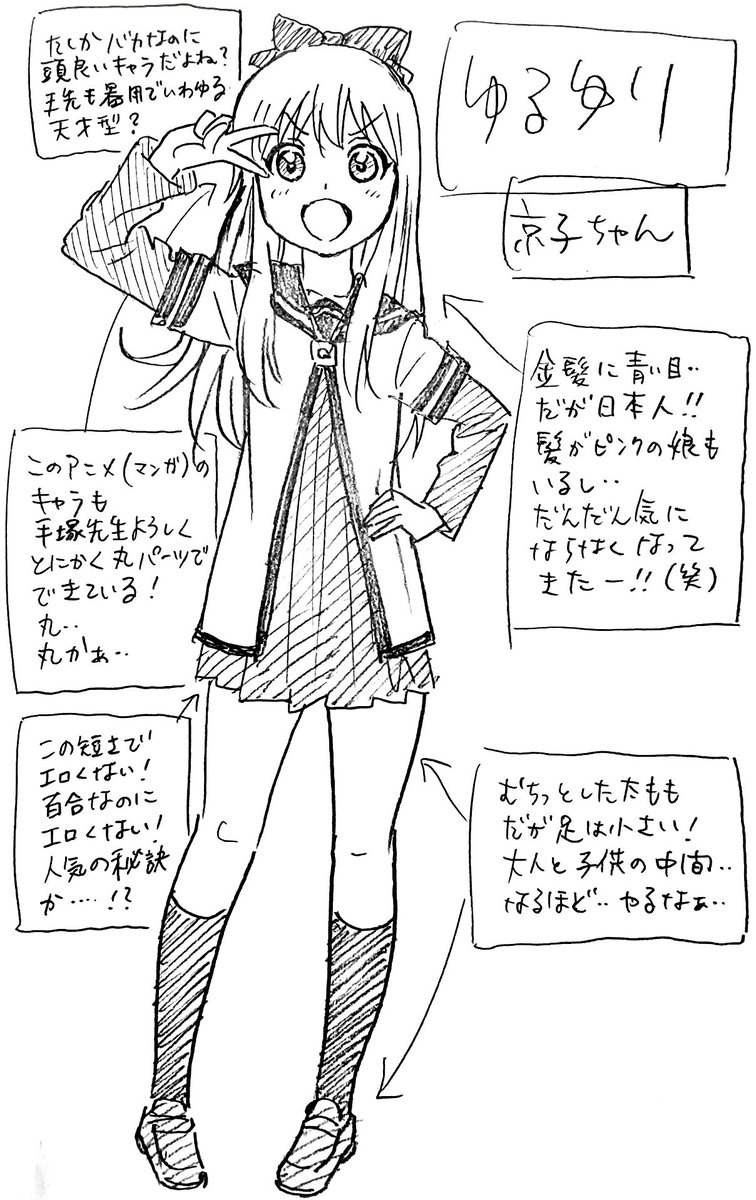 たしかバカなのに
頭良いキャラだよね?
手先も器用でいわゆる
天才型?
ゆるゆり
京子ちゃん
金髪に青い目‥
だが日本人!!
髪がピンクの娘も
いるし‥
だんだん気に
ならなくなって
きたー!!(笑)
このアニメ(マンガ)の
キャラも
手塚先生よろしく
とにかく丸パーツで
できている!
丸‥
丸かぁ‥
この短さで
エロくない!
百合なのに
エロくない!
人気の秘訣
か‥‥!?
むちっとした太もも
だが足は小さい!
大人と子供の中間‥
なるほど‥やるなぁ‥